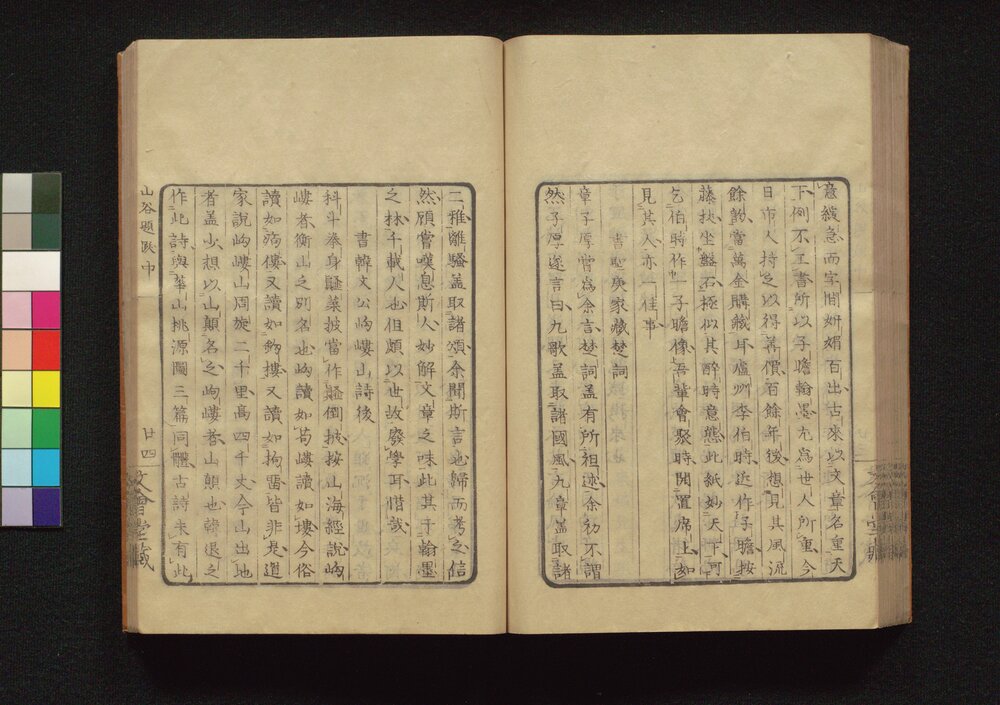 意緩急而字間妍媚百出古來以文章名重天
下例不工書所以子瞻翰墨尤為世人所重今
日市人持之以得善價百餘年後想見其風流
餘韵當萬金購藏耳廬州李伯時近作子瞻按
藤杖坐盤石極似其醉時意態此紙妙天下可
乞伯時作一子瞻像吾輩會聚時開置席上如
見其人亦一佳事
書聖庚家藏楚詞
章子厚嘗為余言楚詞蓋有所祖述余初不謂
然子厚遂言曰九歌蓋取諸國風九章蓋取諸
二雅離騷蓋取諸頌余聞斯言也歸而考之信
然顧嘗嘆息斯人妙解文章之味此其于翰墨
之林千載人也但頗以世故廢學耳惜哉
書韓文公岣嶁山詩後
科斗拳身薤葉披當作薤倒披按山海經說岣
嶁者衡山之別名也岣讀如苟嶁讀如塿今俗
讀如痀僂又讀如鉤摟又讀如拘雷皆非是道
家說岣嶁山周旋二千里高四千丈今山出地
者蓋少想以山顛名之岣嶁者山顛也韓退之
作此詩與華山桃源圖三篇同體古詩未有此
山谷題跋中
廿四
文會堂藏